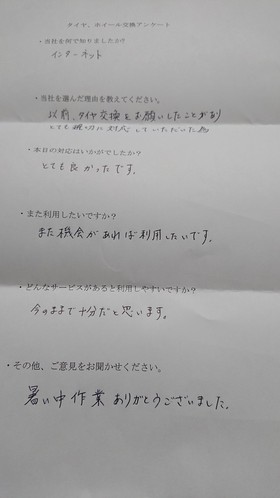 タイヤ、ホイール交換アンケート
・当社を何で知りましたか?
インターネット
・当社を選んだ理由を教えてください。
以前、タイヤ交換をお願いしたことがあり
とても親切に対応していただいた為
・本日の対応はいかがでしたか?
とても良かったです。
・また利用したいですか?
また機会があれば利用したいです。
・どんなサービスがあると利用しやすいですか?
今のままで十分だと思います。
・その他、ご意見をお聞かせください。
暑い中作業ありがとうございました。